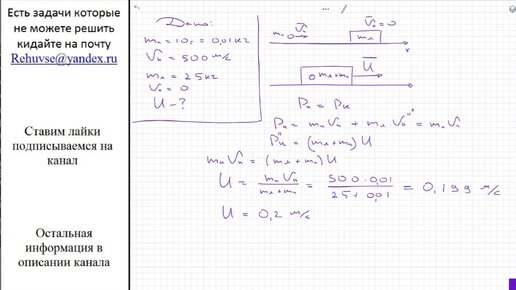 Есть задачи которые
не можете решить
кидайте на почту
Rehuvse@yandex.ru
Ставим лайки
подписываемся на
канал
Остальная
информация в
описании канала
Дано:
mп = 10г = 0,01кг
Vп = 500 м/с
mл = 25кг
Vo = 0
U - ?
mп Vп
Vo = 0
mл
x
mл+mп U
Pн = Pк
Pн = mп Vп + mл Vo = mп Vп
Pк = (mл+mп) U
mп Vп = (mл+mп) U
U = mп Vп / mл+mп = 500 · 0,01 / 25 + 0,01 = 0,199 м/с
U = 0,2 м/с